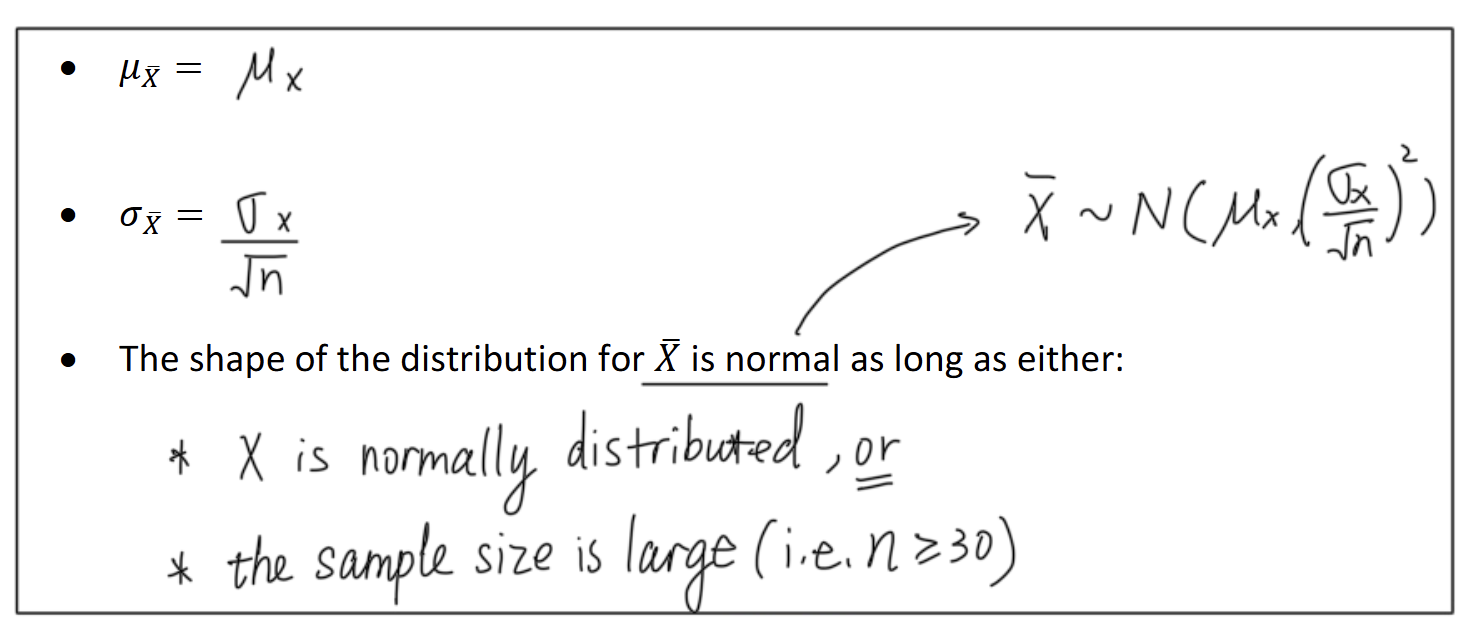 • μ_X̄ = μ_x
• σ_X̄ = σ_x / √n
X̄ ~ N(μ_x, (σ_x / √n)²)
• The shape of the distribution for X̄ is normal as long as either:
* X is normally distributed, or
* the sample size is large (i.e. n ≥ 30)